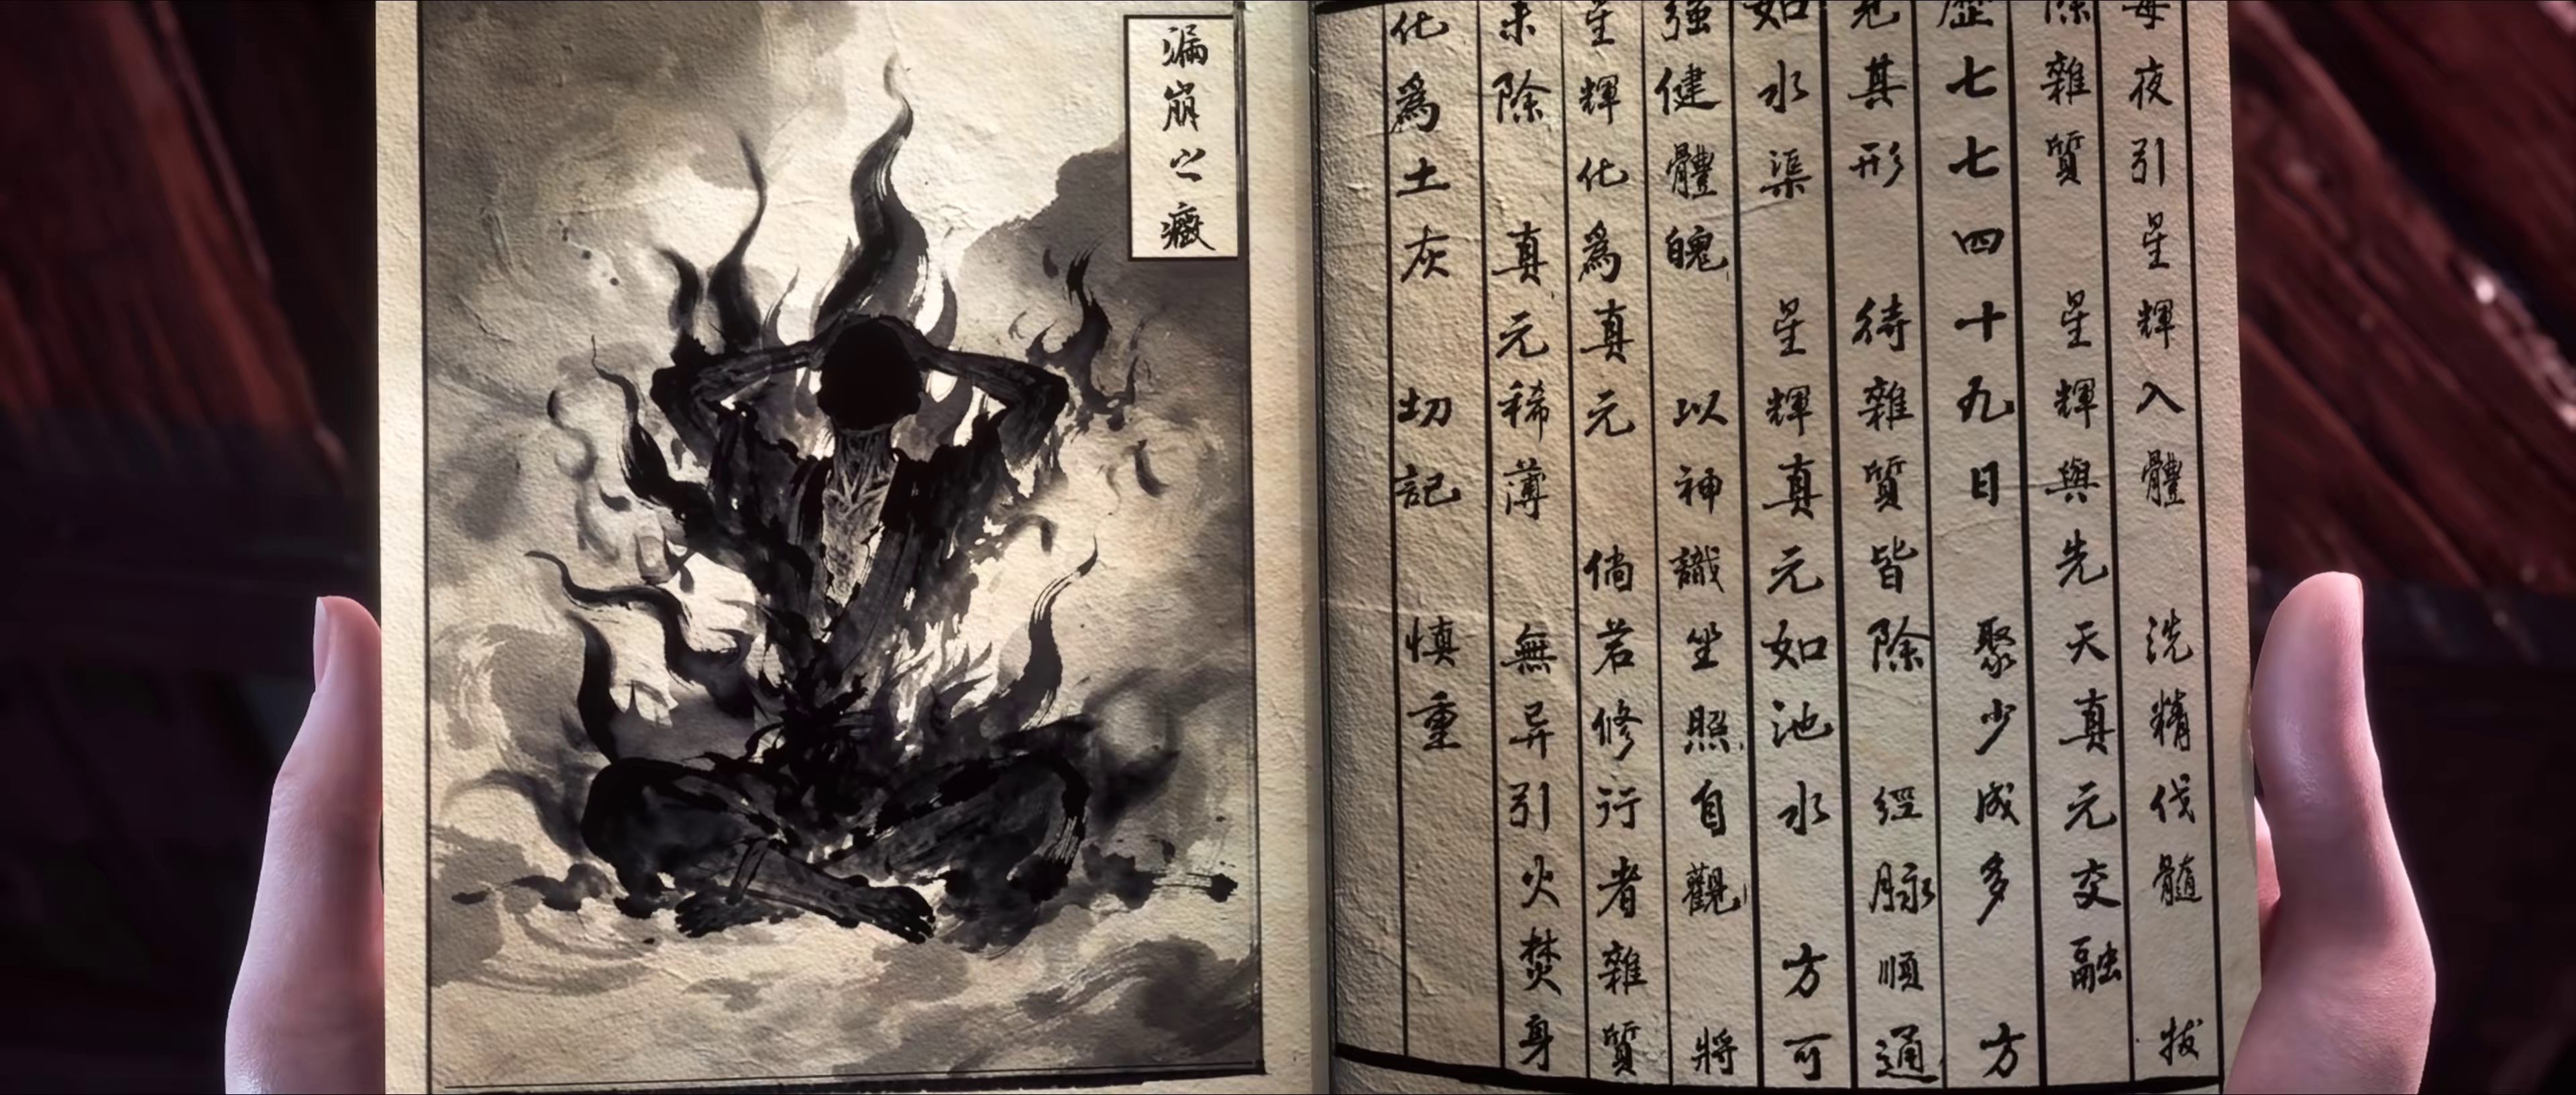 每夜引星輝入體 洗精伐髓 拔
除雜質 星輝與先天真元交融
歷七七四十九日 聚少成多 方
見其形 待雜質皆除 經脉順通
如水渠 星輝真元如池水 方可
強健體魄 以神識坐照自觀 將
星輝化爲真元 倘若修行者雜質
未除 真元稀薄 無异引火焚身
化爲土灰 切記 慎重
漏崩之癥